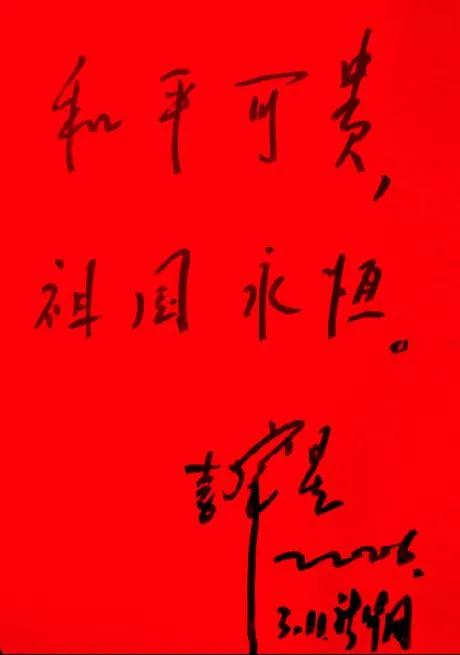 和平可贵，
祖国永恒。
2006.
3.11.